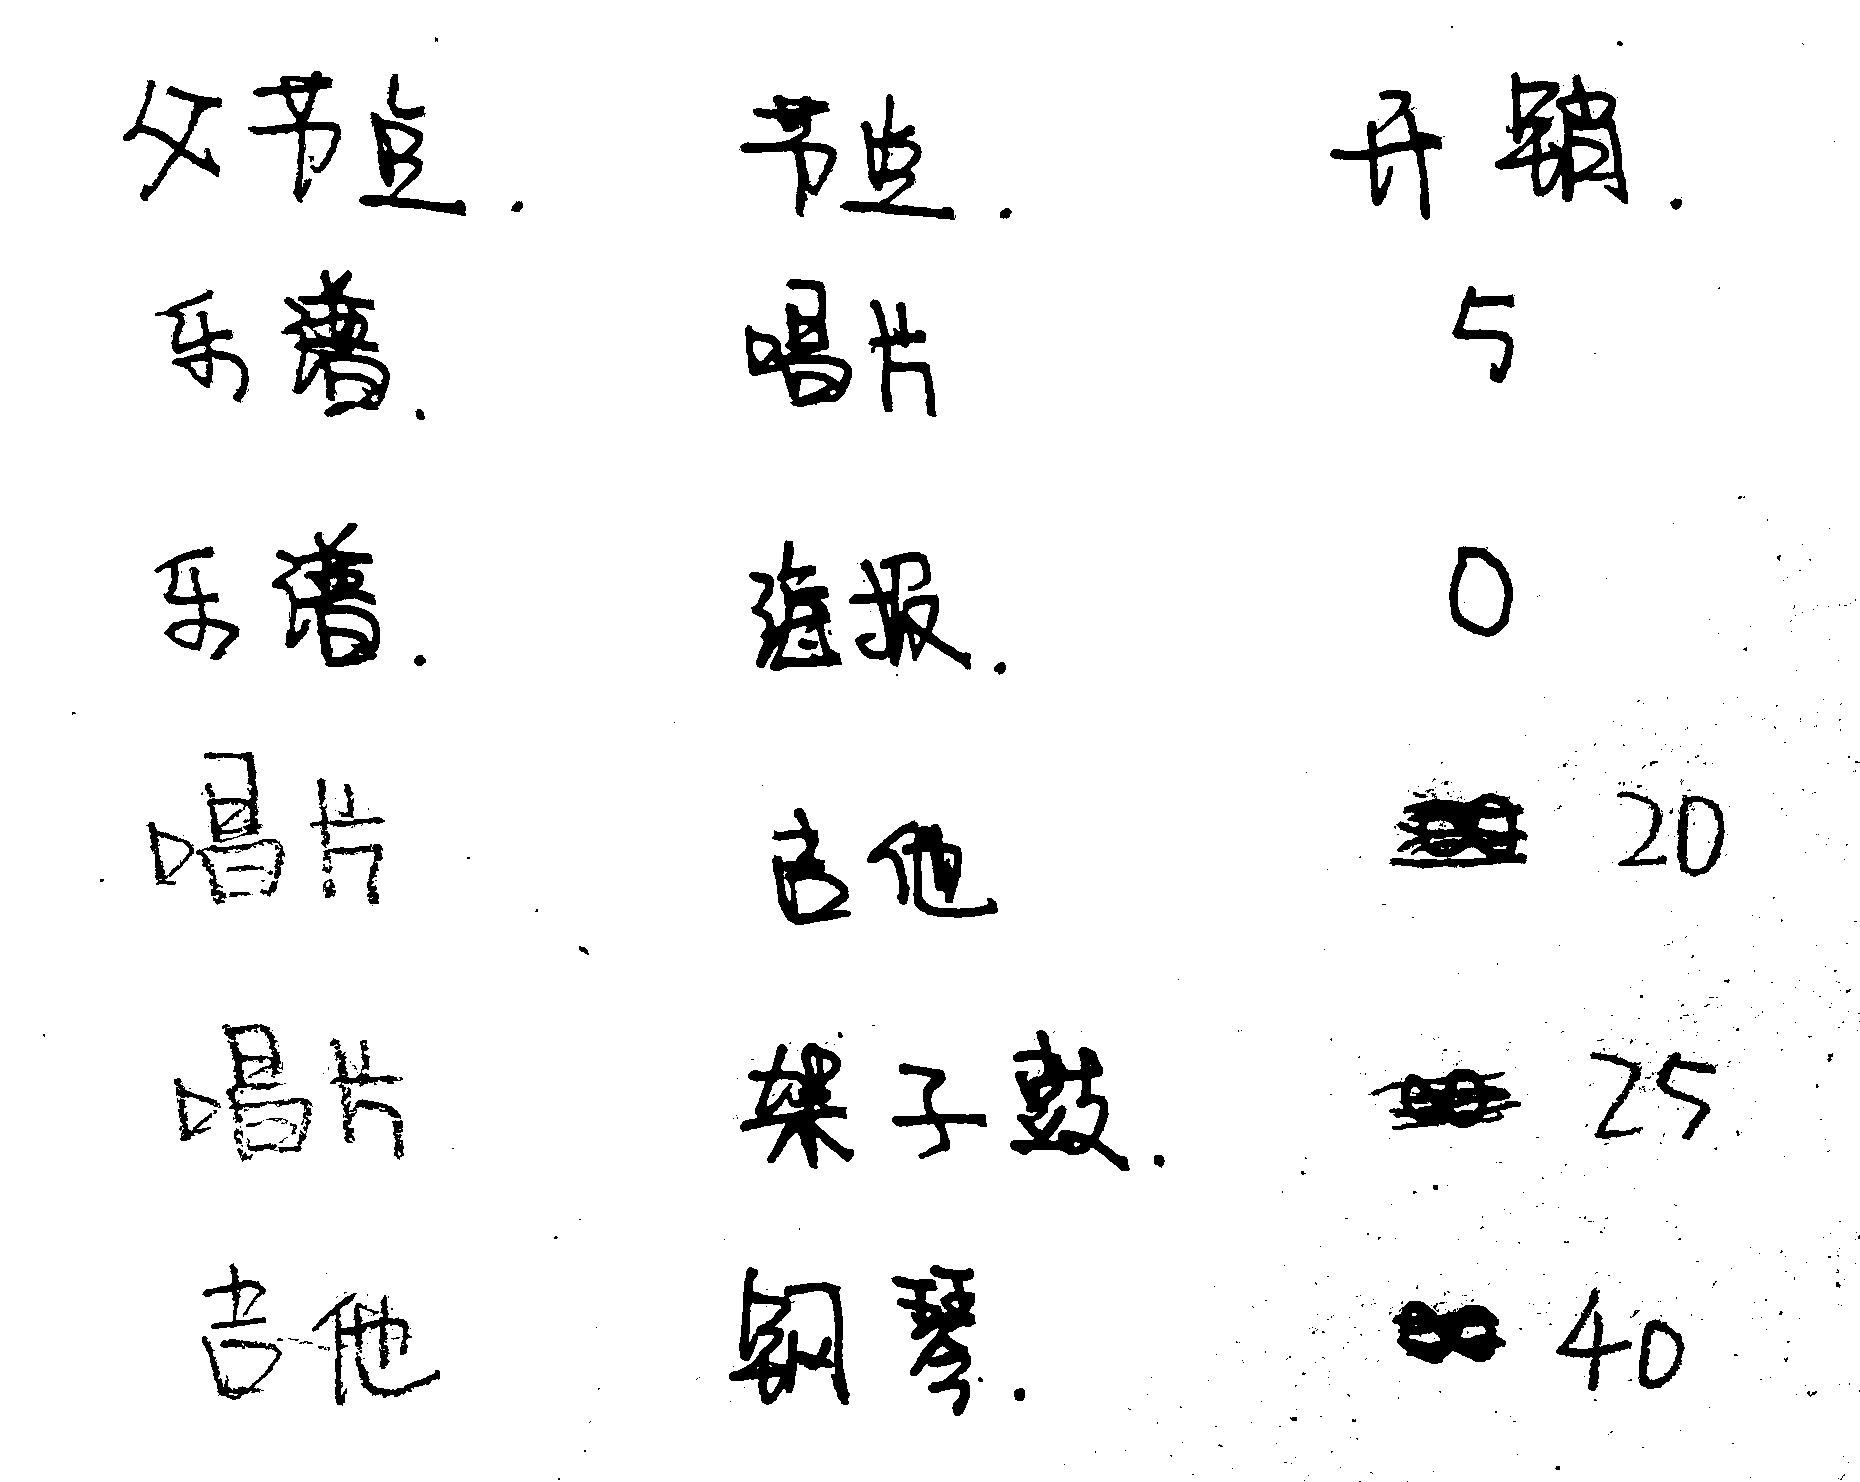 父节点. 节点. 开销.
乐谱. 唱片 5
乐谱. 海报. 0
唱片 吉他 20
唱片 架子鼓. 25
吉他 钢琴. 40